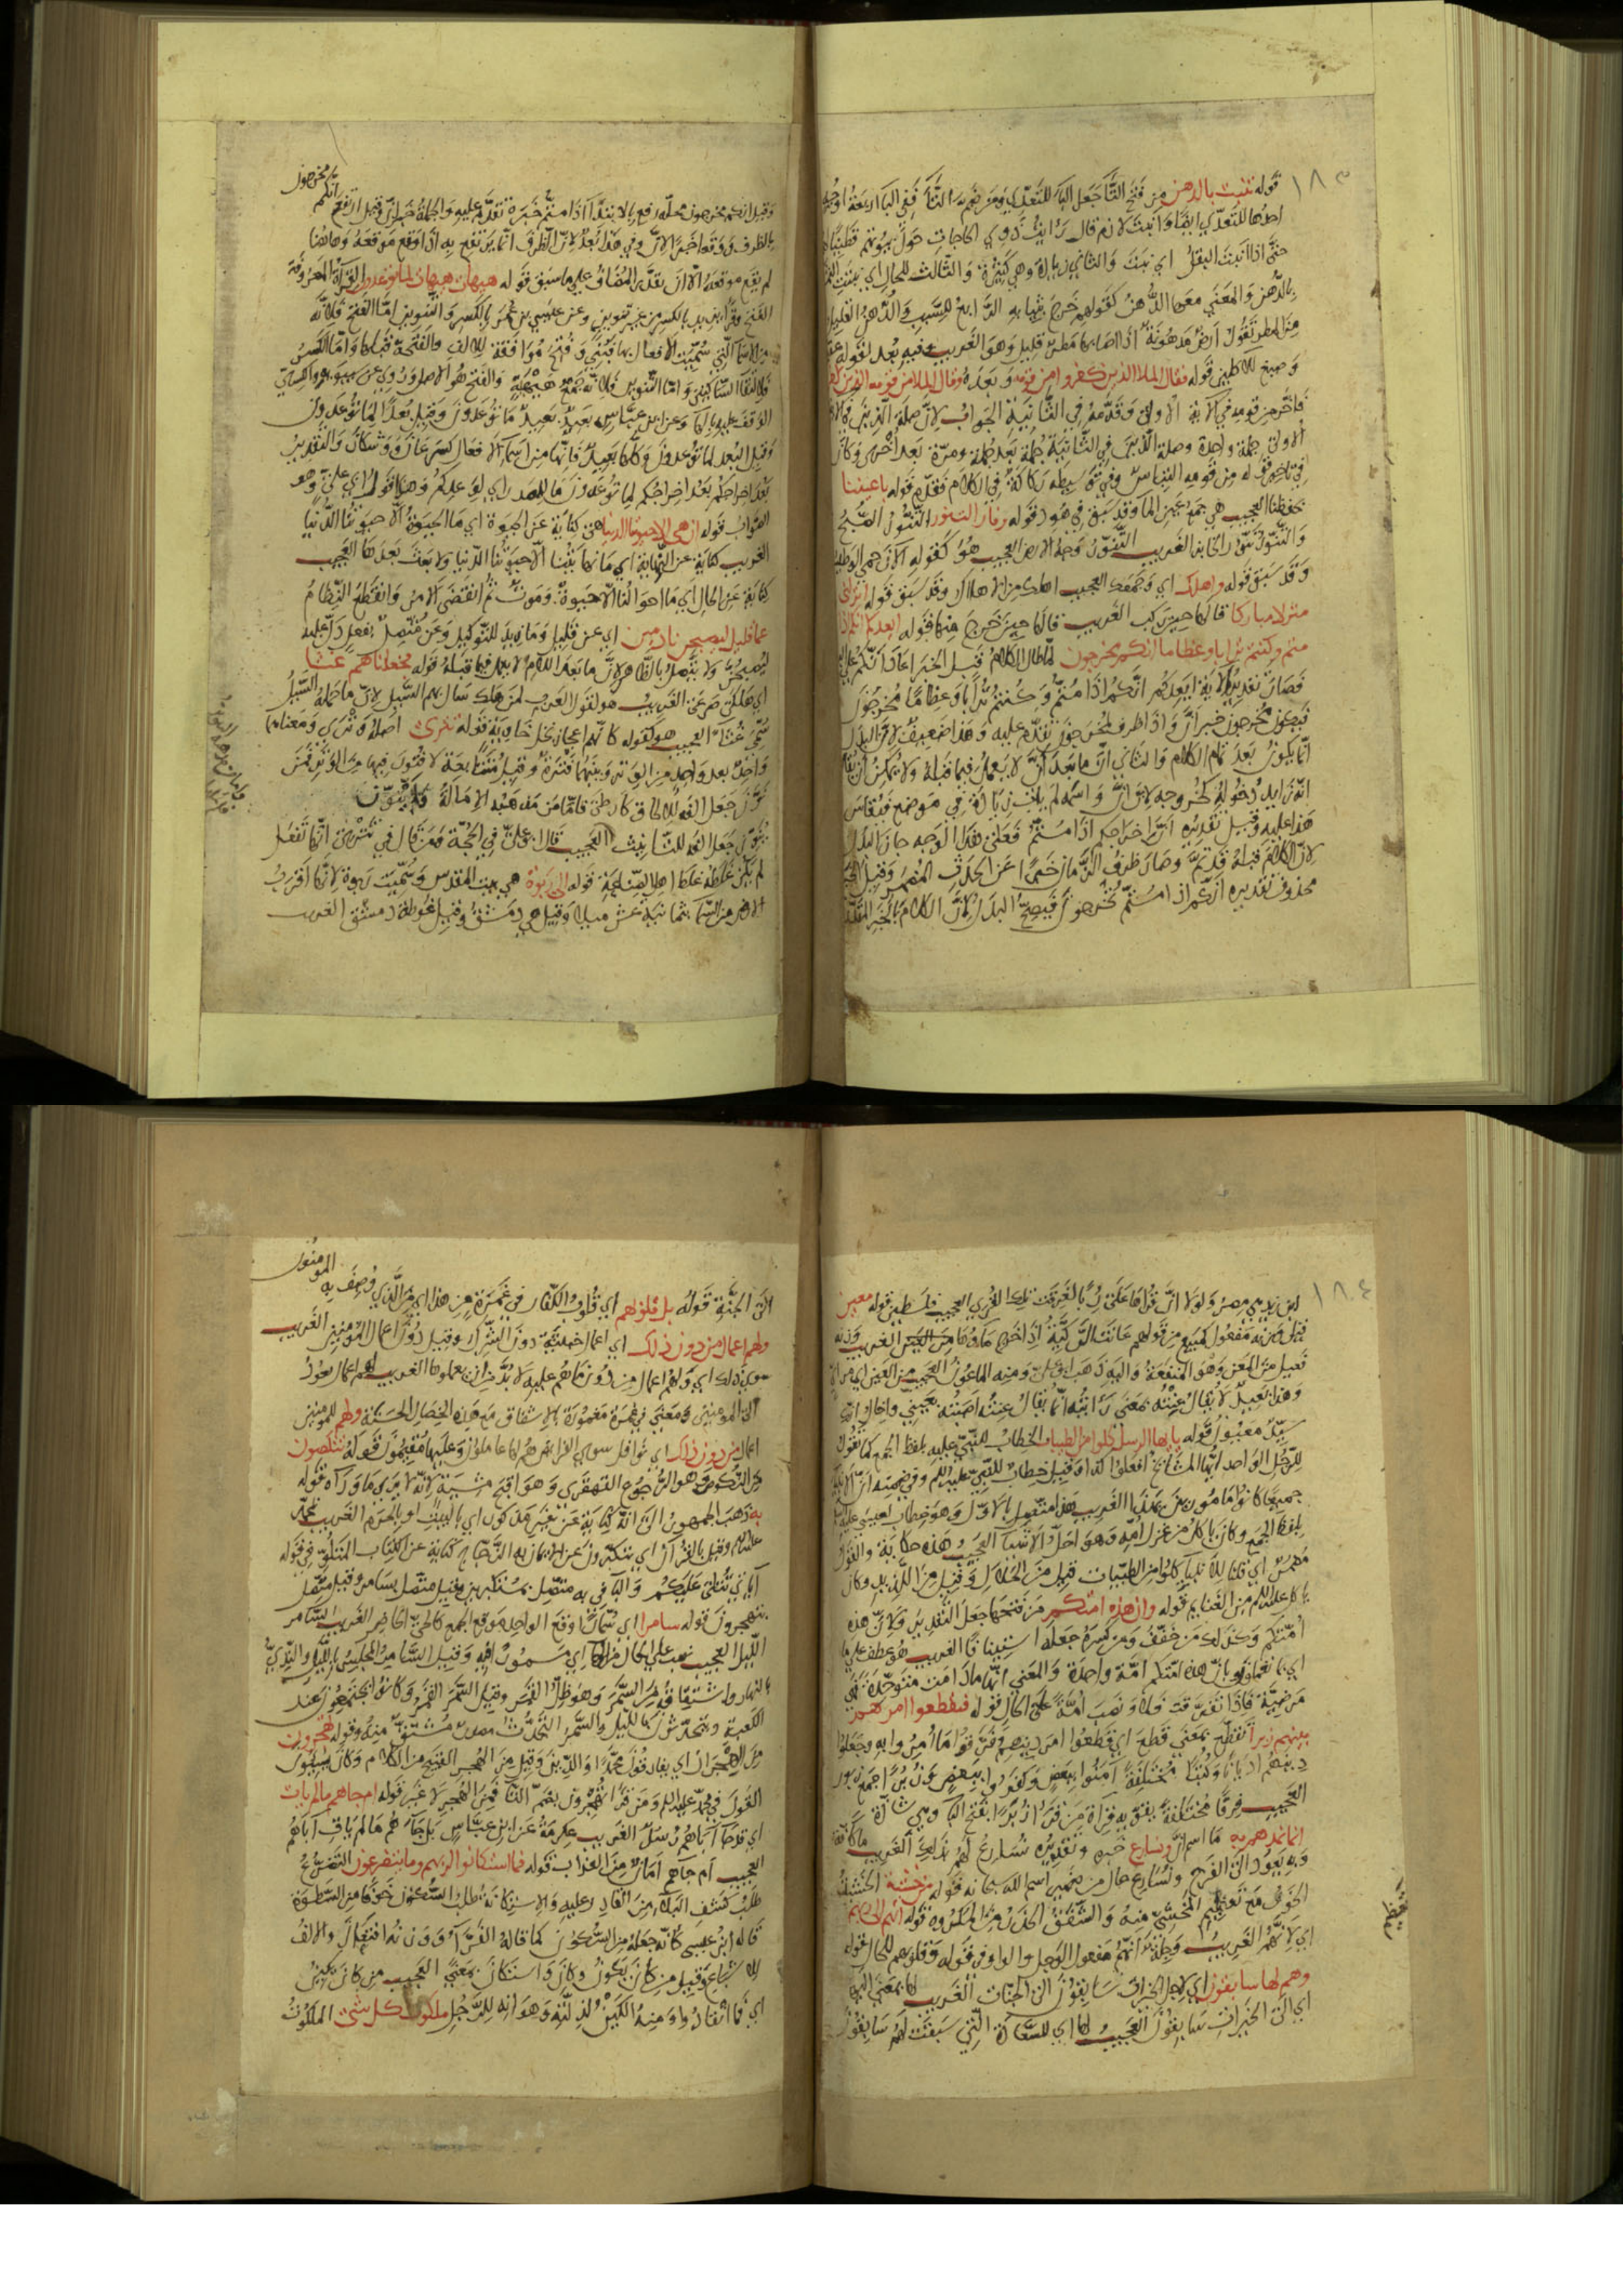 ١٨٣
قوله تنبت بالدهن من فتح التا جعل البا للتعدي ومن ضم التا ففي البا اربعة اوجه
احدها للتعدي ايضا وانبت لازم قال رايت ذوي الحاجات حول بيوتهم قطينا لها
حتى اذا انبت البقل اي نبت والثاني زيادة وهي كثيرة والثالث للحال اي تنبت
بالدهن والمعنى معها الدهن كقولهم خرج بثيابه الرابع للسبب والدهن القليل
من المطر تقول ارض مدهونة اذا اصابها مطر قليل وهو الغريب وفيه بعد لقوله
وصبغ للاكلين قوله فقال الملا الذين كفروا من قومه وبعده وقال الملا من قومه الذين
فاخر من قومه في الاية الاولى وقدمه في الثانية الجواب لان صلة الذين في
الاولى جملة واحدة وصلة الذين في الثانية جملة بعد جملة ومرة بعد اخرى وكان
في تاخير قوله من قومه التباس وفي توسيطه ركاكة في الكلام فقدم قوله باعيننا
بحفظنا العجيب هي جمع عين الما وقد سبق في هود قوله وفار التنور التنور الصبح
والتنور تنور الخابز الغريب التنور وجه الارض العجيب هو كقوله الان حمي الوطيس
وقد سبق قوله واهلك اي وجمعك العجيب اهلك من الاهلاك وقد سبق قوله انزلني
منزلا مباركا قالها حين ركب الغريب قالها حين خرج منها قوله ايعدكم انكم اذا
متم وكنتم ترابا وعظاما انكم مخرجون لما طال الكلام قبل الخبر اعاد انكم
فصار تقدير الاية ايعدكم انكم اذا متم وكنتم ترابا وعظاما مخرجون
فيكون مخرجون خبر ان واذا ظرف لمخرجون تقدم عليه وهذا ضعيف لان البدل
انما يكون بعد تمام الكلام والثاني ان ما بعد ان لا يعمل فيما قبله ولا يمكن ان يقال
انه زايد دخوله كخروجه لان ان واسمه لم يات زيادة في موضع فيقاس
هذا عليه وقيل تقديره ان اخراجكم اذا متم فعلى هذا الوجه جاز البدل
لان الكلام قبله قد تم وصار ظرف الزمان خبرا عن الحدث المضمر وقيل الخبر
محذوف تقديره انكم اذا متم تخرجون فيصح البدل لان الكلام بالخبر المقدر
مخرجون
وقيل انكم مخرجون محله رفع بالابتدا اذا متم خبره تقدم عليه والجملة خبر ان وقيل ارتفع انكم
بالظرف ووقعا خبر الان وفي هذا بعد لان الظرف انما يرتفع به اذا وقع موقعه وهاهنا
لم يقع موقعه الا ان يقدر المضاف على ما سبق قوله هيهات هيهات لما توعدون القراة المعروفة
الفتح وقرا يزيد بالكسر من غير تنوين وعن عيسى بن عمر بالكسر والتنوين اما الفتح فلانه
من الاسما التي سميت الافعال بها فبني وفتح موافقة للالف والفتحة قبلها واما الكسر
فلالتقا الساكنين واما التنوين فلانه جمع هيهة والفتح هو الاصل وروي عن سيبويه والكسايي
الوقف عليه بالها وعن ابن عباس بعيد بعيد ما توعدون وقيل بعدا لما توعدون
وقيل البعد لما توعدون وكلها بعيد فانها من اسما الافعال كسرعان ووشكان والتقدير
بعد اخراجكم بعد اخراجكم لما توعدون ما للمصدر اي لوعدكم وهذا قول ابي علي وهو
الصواب قوله ان هي الا حيوتنا الدنيا هي كناية عن الحيوة اي ما الحيوة الا حيوتنا الدنيا
الغريب كناية عن النهاية اي ما نهايتنا الا حيوتنا الدنيا ولا بعث بعدها العجيب
كناية عن الحال اي ما احوالنا الا حيوة وموت ثم انقضى الامر وانقطع النظام
عما قليل ليصبحن نادمين اي عن قليل وما زيد للتوكيد وعن متصل بفعل دل عليه
ليصبحن ولا يتصل بالظاهر لان ما بعد اللام لا يعمل فيما قبله قوله فجعلناهم غثا
اي هلكى صرعى الغريب هو لقول العرب لمن هلك سال بهم السيل لان ما حمله السيل
سمي غثا العجيب هو كقوله كانهم اعجاز نخل خاوية قوله تترى اصله وترى ومعناها
واحد بعد واحد من الوتر وبينهما فترة وقيل متتابعة لا فتور فيها من الوتر فمن
نون جعل الفه للالحاق كارطى فاما من مذهبه الامالة فلا ينون
ينون جعل الفه للتانيث العجيب قال ابو علي في الحجة فمن قال في تترى انها تفعل
لم يكن غلطه غلط اهل الصناعة قوله الى ربوة هي بيت المقدس وسميت ربوة لانها اقرب
الارض من السما بثمانية عشر ميلا وقيل هي دمشق وقيل غوطة دمشق الغريب
١٨٤
ابن زيد هي مصر ولولا ان قراها على ربا لغرقت تلك القرى العجيب فلسطين قوله معين
قيل وزنه مفعول كمبيع من قولهم عانت الركية اذا خرج ماوها من العين الغريب وزنه
فعيل من المعن وهو المنفعة واليه ذهب ابو علي ومنه الماعون العجيب من العين اي مرئي
وهذا بعيد لا يقال عنته بمعنى رايته انما يقال عنته اصبته بعيني
سيد معيون قوله يا ايها الرسل كلوا من الطيبات الخطاب للنبي عليه بلفظ الجمع كما تقول
للرجل الواحد ايها المشايخ افعلوا كذا وقيل خطاب للنبي عليه السلم وفي ضمنه ان الانبيا
جميعا كانوا مامورين بهذا الغريب هذا متصل بالاول وهو خطاب لعيسى عليه السلم
بلفظ الجمع وكان ياكل من غزل امه وهو احل الاشيا العجيب هذه حكاية والقول
مضمر اي قلنا للانبيا كلوا من الطيبات قيل من الحلال وقيل من اللذيذ وكان
ياكل عليه السلم من الغنايم قوله وان هذه امتكم من فتحها جعل التقدير ولان هذه
امتكم وكذلك من خفف ومن كسره جعله استينافا الغريب هو عطف على ما
اي بما تعملون وبان هذه امتكم امة واحدة والمعنى انها ما دامت متوحدة فهي
مرضية فاذا تفرقت فلا ونصب امة على الحال قوله فتقطعوا امرهم
بينهم زبرا تقطع بمعنى قطع اي قطعوا امر دينهم وتفرقوا ما امروا به وجعلوا
دينهم اديانا وكتبا مختلفة امنوا ببعض وكفروا ببعض زبرا جمع زبور
العجيب فرقا مختلفة يقويه قراة من قرا زبرا بفتح البا وهي شاذة
انما نمدهم به ما اسم ان ونسارع خبره وتقديره نسارع لهم به الغريب ما كافة
وبه يعود الى الفرح ونسارع حال من ضمير اسم الله سبحانه قوله من خشية الخشية
الخوف مع تعظيم المخشي منه والشفقة الحذر من المكروه قوله انهم الى ربهم
اي لانهم الغريب وجلة انهم مفعول الوجل والواو في قوله وقلوبهم للحال قوله
وهم لها سابقون اي لاجل الخيرات سابقون الى الجنات الغريب لها بمعنى اليها
اي الى الخيرات سابقون العجيب لها اي للسعادة التي سبقت لهم سابقون
تعظيم
المومنون
الى الجنة قوله بل قلوبهم اي قلوب الكفار في غمرة من هذا اي من الذي وصف به
ولهم اعمال من دون ذلك اي اعمال خبيثة دون الشرك وقيل دون اعمال المومنين الغريب
سوى ذلك اي ولهم اعمال من دون ما هم عليه لا بد من ان يعملوها الغريب لهم اعمال يعود
الى المومنين ومعنى في غمرة مغمورة بالاشفاق مع هذه الخصال الحسنة ولهم للمومنين
اعمال من دون ذلك اي نوافل سوى الفرايض هم لها عاملون وعليها مقيمون قوله تنكصون
من النكوص وهو الرجوع القهقرى وهو اقبح مشية لانه لا يرى ما وراه قوله
به ذهب الجمهور الى انه كناية عن غير مذكور اي بالبيت او بالحرم الغريب بمحمد
عليه السلم وقيل بالقران اي تتكبرون عن الايمان به الزجاج كناية عن الكتاب المتلو في قوله
اياتي تتلى عليكم والبا في به متصل بمستكبرين وقيل متصل بسامرا وقيل متصل
بتهجرون قوله سامرا اي سمارا اوقع الواحد موقع الجمع كالحاج الحاضر الغريب السامر
الليل العجيب نصب على الحال من الها اي مسمورا فيه وقيل السامر المجلس بالليل والندي
بالنهار واشتقاقه من السمر وهو ظل القمر وقيل السمر القمر وكانوا يجتمعون عند
الكعبة ويتحدثون بالليل والسمر التحدث مصدر مشتق منه وقوله تهجرون
من الهجران اي يفارقون محمدا والدين وقيل من الهجر القبيح من الكلام وكان يسيون
القول في محمد عليه السلم ومن قرا تهجرون بضم التا فمن الهجر لا غير قوله ام جاهم ما لم يات
اي قد جا اباهم رسل الغريب عكرمة عن ابن عباس بل جاهم ما لم يات اباهم
العجيب ام جاهم امان من العذاب قوله فما استكانوا لربهم وما يتضرعون التضرع
طلب كشف البلا من القادر عليه والاستكانة طلب السكون خوفا من السطوة
قاله ابن عيسى كانه جعله من السكون كما قاله الفرا ووزنه افتعال والالف
للاشباع وقيل من كان يكون وكان واستكان بمعنى العجيب من كان يكين
اي فما انقادوا ومنه الكين لذلته وهو انه للرجل ملكوت كل شي الملكوت